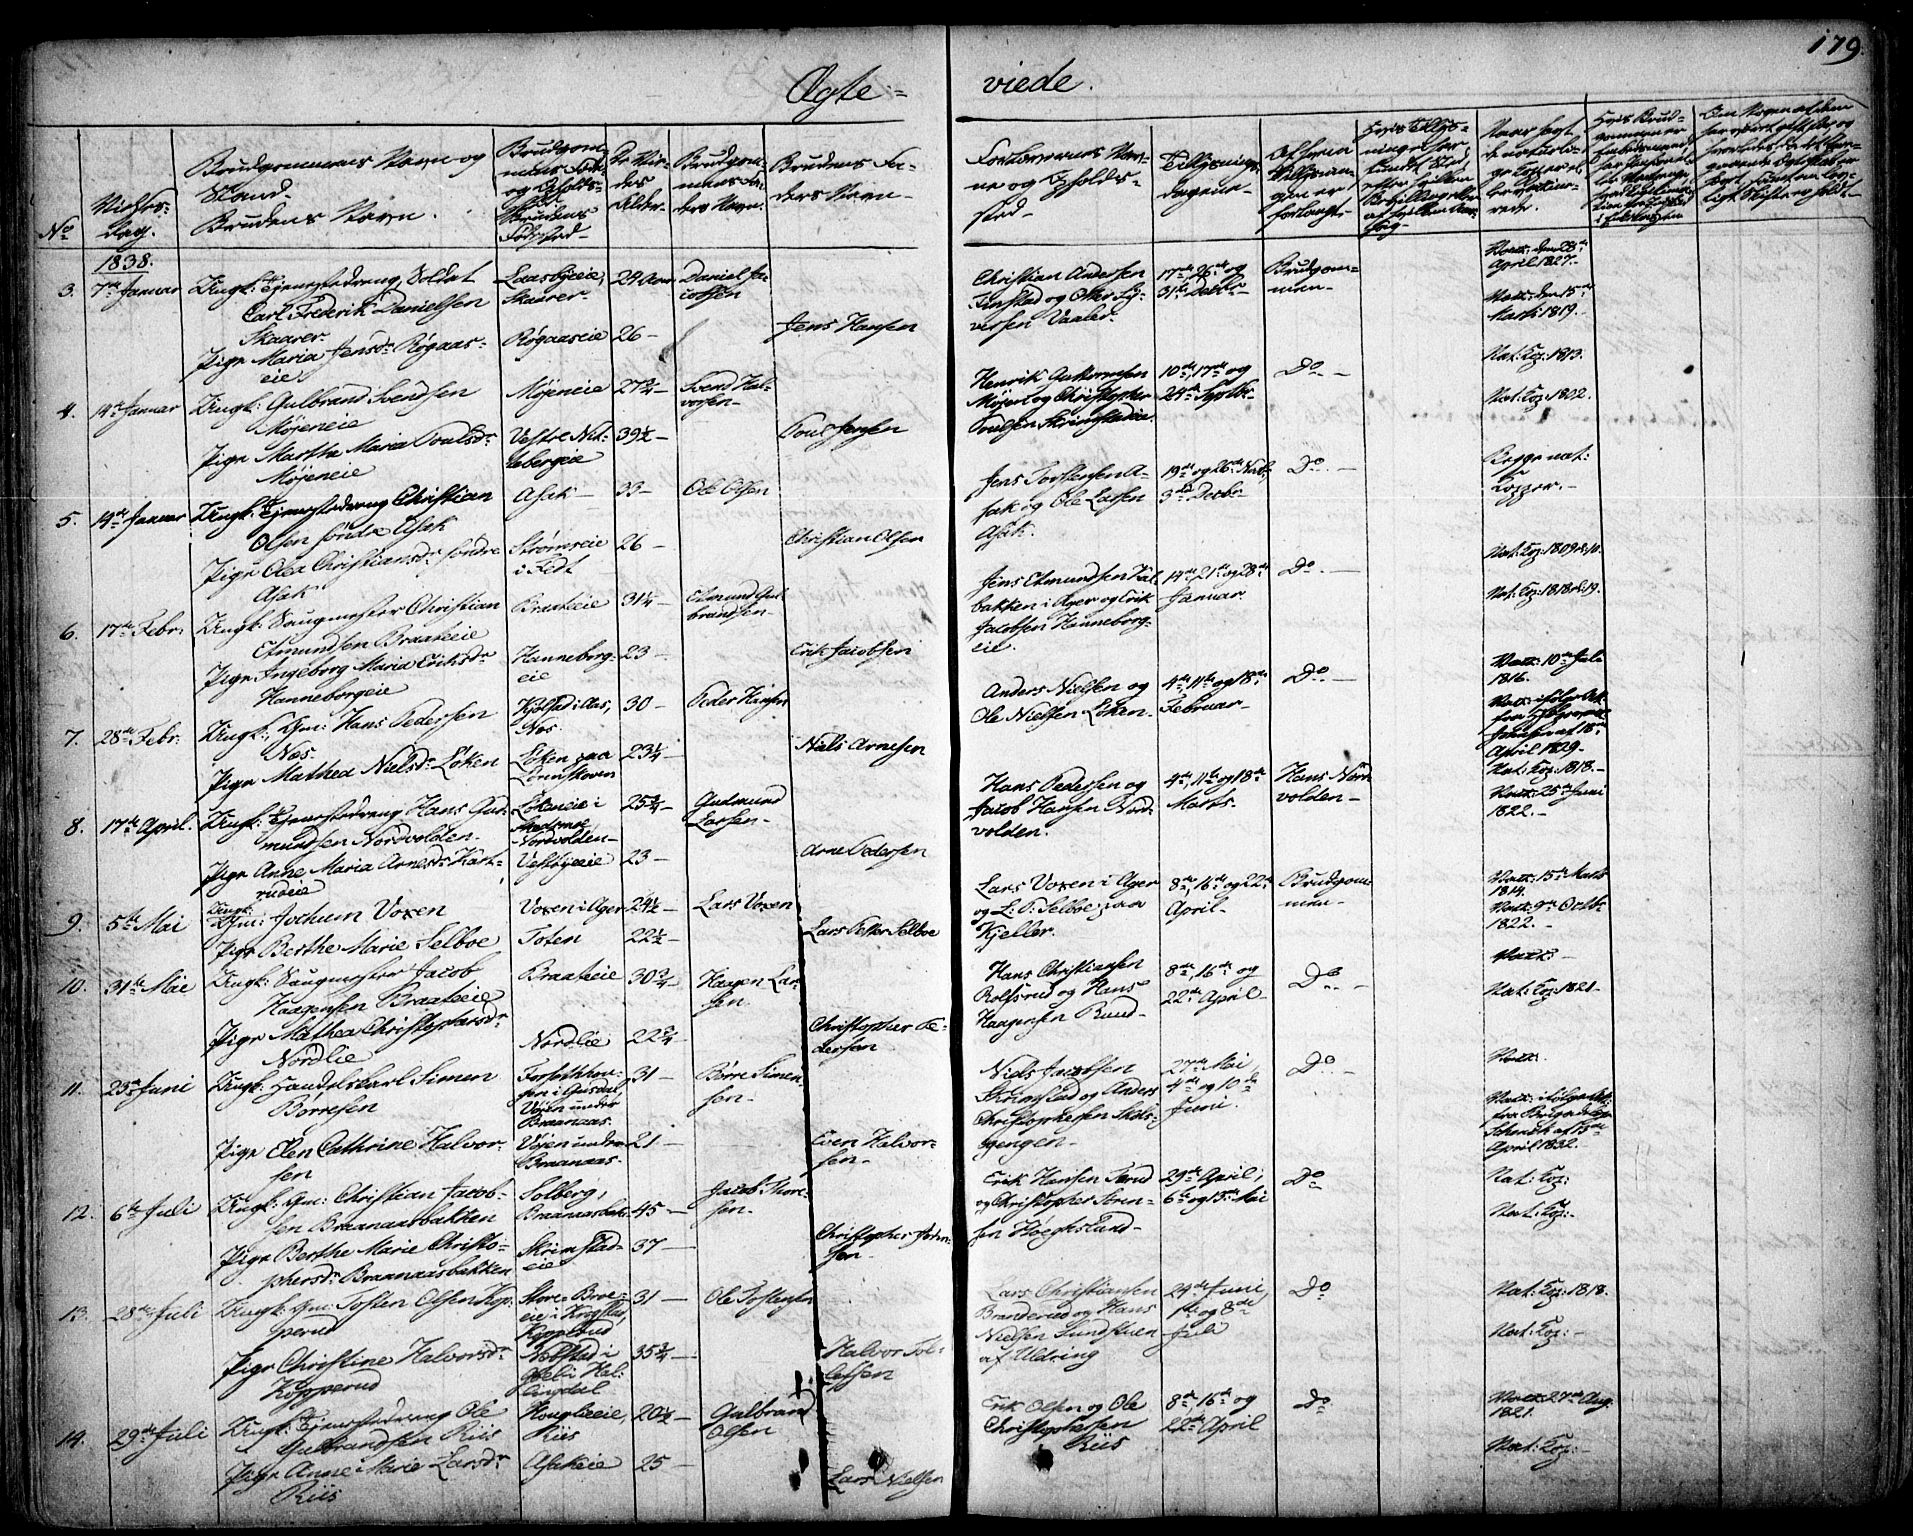 179.
Ægte =
viede.
No
Vielses-
dag.
Brudgommens Navn og
Stand.
Brudens Navn.
Brudgom-
mens Føde
og Opholds-
sted
Brudens
Fødested
De Vie-
des
Alder
Brudgom-
mens Fa-
ders Navn
Brudens Fa-
ders Navn
Forlovernes Nav-
ne og Opholds-
sted
Tillysnings-
dagene
Af hvem
Tillysnin-
gen er
forlangt
1838.
3. 7de Januar Ungk: Tjenestedreng, Soldat
Carl Frederik Danielsen
Skaarer
Laasbyeeie,
Skaarer
24 Aar
Daniel Ja-
cobsen
Christian Andersen
Finstad og Otter Sy-
versen Vaaler
17de, 26de og
31te Decbr
Brudgom-
men
Vacc: den 28de
April 1827.
Pige Maria Jensdr Røgaas-
eie
Røgaaseie
26 —
Jens Hansen
Vacc: den 15de
Marts 1819.
4. 14de Januar Ungk: Gulbrand Svendsen
Møjeneie
Møjeneie
27 3/4 —
Svend Hal-
vorsen
Henrik Guttormsen
Møjen og Christopher
Poulsen
10de, 17de og
24de Septbr
Do —
Nat: Kop: 1813.
Pige Marthe Maria Poulsdr
Møjeneie
Vestre Nit-
tebergeie
39 1/2 —
Poul Jensen
Nat: Kop: 1802.
5. 14de Januar Ungk: Tjenestedreng Christian
Olsen søndre Asak
Asak —
33 —
Ole Olsen
Jens Torstensen A-
sak og Ole Larsen
Asak.
19de og 26de Novb,
3die Decbr
Do —
Begge nat:
Kopper.
Pige Olea Christiansdr søndre
Asak
Strømseie
i Fedt
26 —
Christian Olsen
6. 17de Febr: Ungk: Saugmester Christian
Edmundsen Braateeie
Braateeie
31 1/2 —
Edmund Gul-
brandsen
Jens Edmundsen Kal-
bakken i Ager og Erik
Jacobsen Hanneborg-
eie.
14de, 21de og 28de
Januar
Do —
Nat: Kop: 1809 & 10.
Pige Ingeborg Maria Eriksdr
Hanneborgeie
Hanneborg-
eie
23 —
Erik Jacobsen
Nat: Kop: 1818 & 19.
7. 28de Febr: Ungk: Gm: Hans Pedersen
Næs.
Kjølstad i Aas,
Næs
30 —
Peder Hansen
Anders Nielsen og
Ole Nielsen Løken
4de, 11te og 18de
Februar
Do —
Vacc: 10de Juli
1816.
Pige Mathea Nielsdr Løken
Løken paa
Lørenskoven
23 1/4 —
Niels Arnesen
Vacc: ifølge Att:
fra
af 18de
April 1829.
8. 17de April. Ungk: Tjenestedreng Hans Gud-
mundsen Nordvolden
Løkeneie i
Skedsmoe,
Nordvolden
25 3/4 —
Gudmund
Larsen
Hans Pedersen og
Jacob Hansen Nord-
volden.
4de, 11te og 18de
Marts
Hans Nord-
volden
Nat: Kop: 1818.
Pige Anne Maria Arnesdr Kart-
rudeie
Vestbyeeie
23 —
Arne Pedersen
Vacc: 25de Juni
1822.
9. 5te Mai Ungk:
Gm: Jochum Voxen
Voxen i Ager
24 1/2 —
Lars Voxen
Lars Voxen i Ager
og L: P: Selboe paa
Kjeller.
8de, 16de og 22de
April
Brudgom-
men
Vacc: 15de Marts
1814.
Pige Berthe Marie Selboe
Toten
22 1/2 —
Lars Petter Selboe
Vacc: 9de Octbr
1822.
10. 31te Mai Ungk: Saugmester Jacob
Haagensen Braateeie
Braateeie
30 3/4 —
Haagen Lar-
sen
Hans Christiansen
Rolfsrud og Hans
Haagensen Ruud
8de, 16de og
22de April
Do —
Vacc: —
Pige Mathea Christophersdr
Nordlie
Nordlie
22 3/4 —
Christopher Pe-
dersen
Nat: Kop: 1821
11. 23de Juni Ungk: Handelskarl Simen
Børresen
i Gusdal,
Vøien under
Braanaas
31 —
Børre Simen-
sen
Niels Jacobsen
Skrimstad og Anders
Christophersen Skds-
gengen
27de Mai,
4de og 10de
Juni.
Do —
Vacc:
Pige Elen Cathrine Halvor-
sen
Vøien under
Braanaas
21 —
Even Halvor-
sen
Vacc: ifølge Att:
fra
af 13de
April 1832.
12. 6te Juli Ungk: Gm: Christian Jacob-
sen Braanaasbakken
Solberg,
Braanaasbak:
45 —
Jacob Thore-
sen
Erik Hansen Sørud
og Christopher Søren-
sen Høeghsland
29de April,
6te og 13de Mai
Do
Nat: Kop:
Pige Berthe Marie Christo-
phersdr Braanaasbakken
Skrimstad-
eie
37 —
Christopher
sen
Nat: Kop:
13. 28de Juli Ungk: Gm: Tosten Olsen Kop-
perud
Store Broe-
eie i Krogstad,
Kopperud
31 —
Ole Tostensen
Lars Christiansen
Branderud og Hans
Nielsen Sundstuen
af Uldring
24de Juni,
1te og 8de
Juli
Do
Nat: Kop: 1818.
Pige Christine Halvorsdr
Kopperud
Næbstad i
Gol i Hal-
lingdal
35 3/4 —
Halvor Tol-
lefsen
Nat: Kop: —
14. 29de Juli Ungk: Tjenestedreng Ole
Gulbrandsen Riis
Hougliceie,
Riis
20 1/2 —
Gulbrand
Olsen
Erik Olsen og Ole
Christophersen
Riis
8de, 16de og
22de April
Do
Vacc: 27de Aug.
1821.
Pige Anne Marie Larsdr
Riis
Asakeie
25 —
Lars Nielsen
Nat: Kop: —